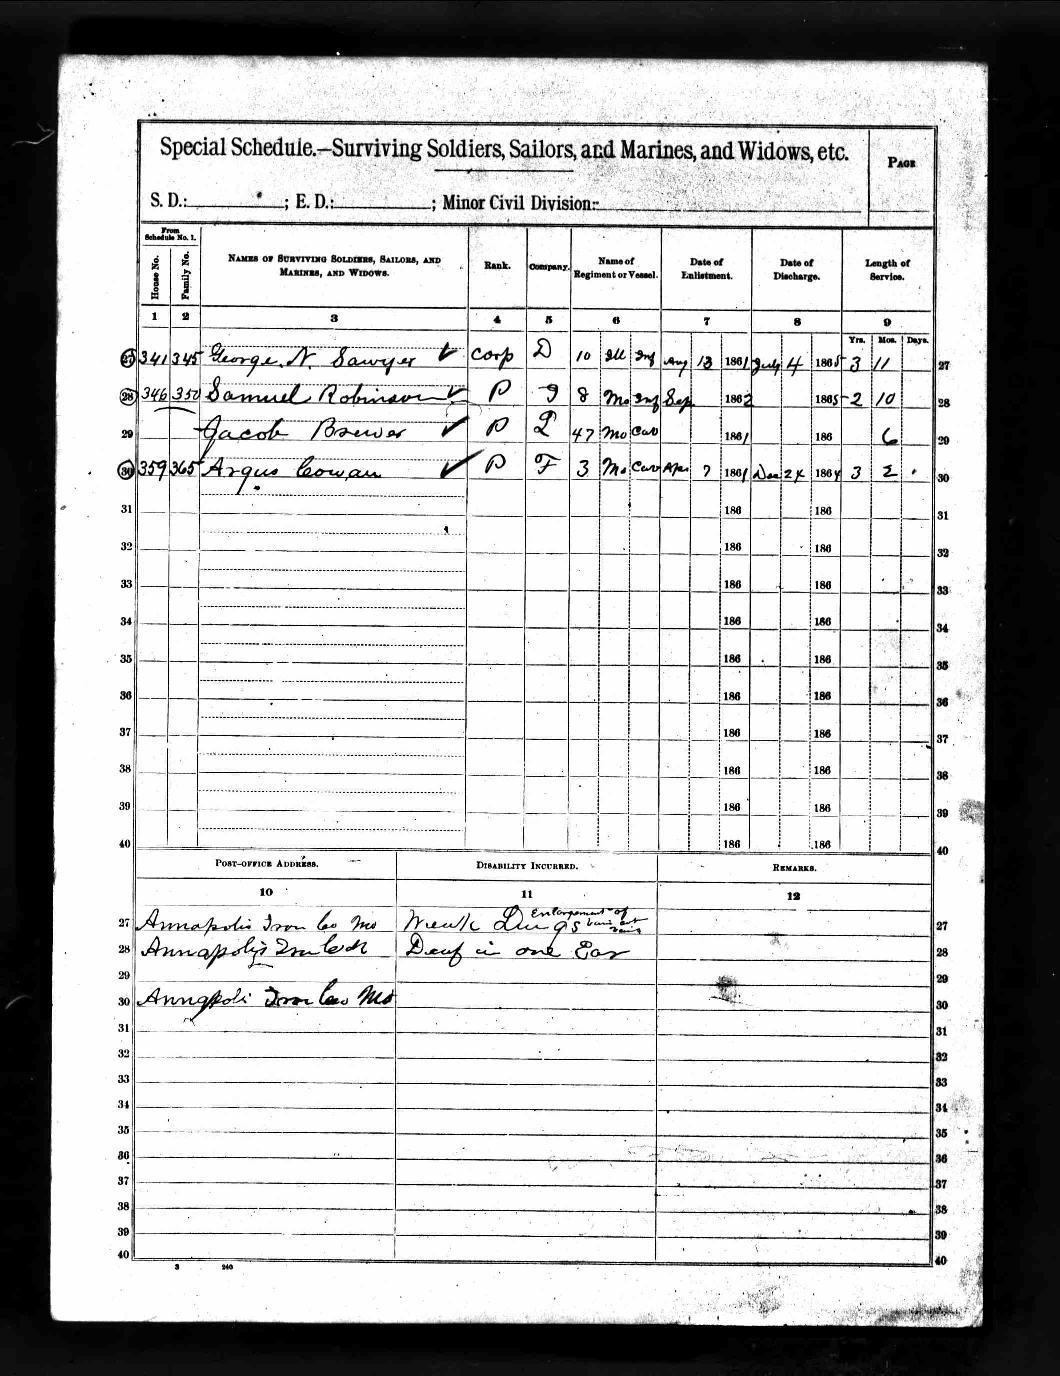 Special Schedule.—Surviving Soldiers, Sailors, and Marines, and Widows, etc.
PAGE
S. D.: ; E. D.: ; Minor Civil Division:
From Schedule No. 1.
House No. Family No. NAMES OF SURVIVING SOLDIERS, SAILORS, AND MARINES, AND WIDOWS. Rank. Company. Name of Regiment or Vessel. Date of Enlistment. Date of Discharge. Length of Service.
1 2 3 4 5 6 7 8 9
Yrs. Mos. Days.
27 341 345 George. N. Sawyer corp D 10 Ill Inf Aug 13 1861 July 4 1865 3 11 27
28 346 350 Samuel Robinson P G 8 Mo Inf Sep 1862 1865 2 10 28
29 Jacob Brewer P 47 Mo Cav 1861 186 6 29
30 359 365 Argus Cowan P F 3 Mo Cav Apr 7 1861 Dec 24 1864 3 2 30
31 186 186 31
32 186 186 32
33 186 186 33
34 186 186 34
35 186 186 35
36 186 186 36
37 186 186 37
38 186 186 38
39 186 186 39
40 186 186 40
POST-OFFICE ADDRESS. DISABILITY INCURRED. REMARKS.
10 11 12
27 Annapolis Iron Co Mo Weak Lungs Enlargement of 27
28 Annapolis Deaf in one Ear 28
29 29
30 Annapoli Iron Co Mo 30
31 31
32 32
33 33
34 34
35 35
36 36
37 37
38 38
39 39
40 40
3 240